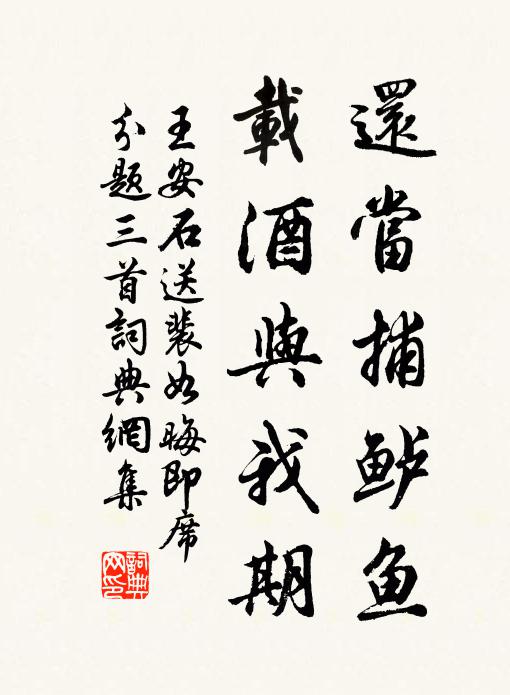 還當捕鲈鱼
載酒與我期
王安石送裴如晦即席
分题三首詞典網集
詞典
网印